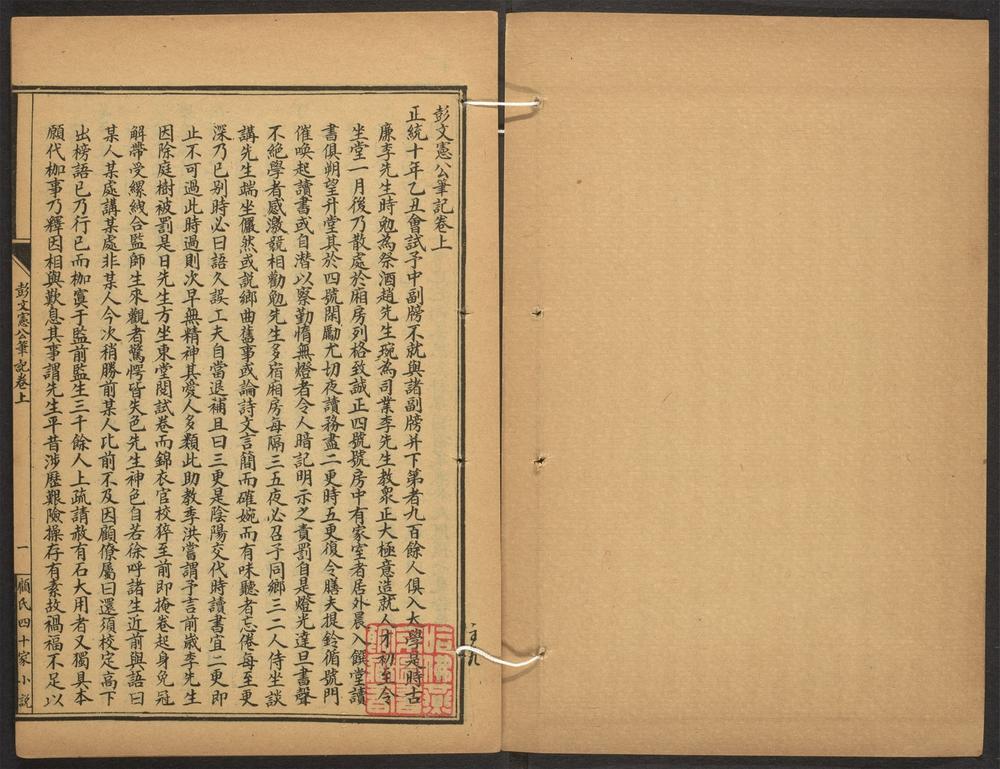 彭文憲公筆記卷上
正統十年乙丑會試予中副牓不就與諸副牓并下第者九百餘人俱入太學是時古
廉李先生時勉為祭酒趙先生琬為司業李先生教衆正大極意造就人才初至令
坐堂一月後乃散處於廂房列格致誠正四號號房中有家室者居外晨入饌堂讀
書俱朔望升堂其於四號閑勵尤切夜讀務盡二更時五更復令膳夫提鈴循號門
催喚起讀書或自潜以察勤惰無燈者令人暗記明示之責罰自是燈光達旦書聲
不絶學者感激競相勸勉先生多宿廂房每隔三五夜必召予同鄉三二人侍坐談
講先生端坐儼然或説鄉曲舊事或論詩文言簡而確婉而有味聽者忘倦每至更
深乃已别時必曰語久誤工夫自當退補且曰三更是陰陽交代時讀書宜二更即
止不可過此時過則次早無精神其愛人多類此助教李洪嘗謂予言前歲李先生
因除庭樹被罰是日先生方坐東堂閲試卷而錦衣官校猝至前即掩卷起身免冠
解帶受縲絏合監師生來觀者驚愕皆失色先生神色自若徐呼諸生近前與語曰
某人某處講某處非某人今次稍勝前某人比前不及因顧僚屬曰還須校定高下
出榜語已乃行已而枷寘于監前監生三千餘人上疏請赦有石大用者又獨具本
願代枷事乃釋因相與歎息其事謂先生平昔涉歷艱險操存有素故禍福不足以
彭文憲公筆記卷上
一
顧氏四十家小説